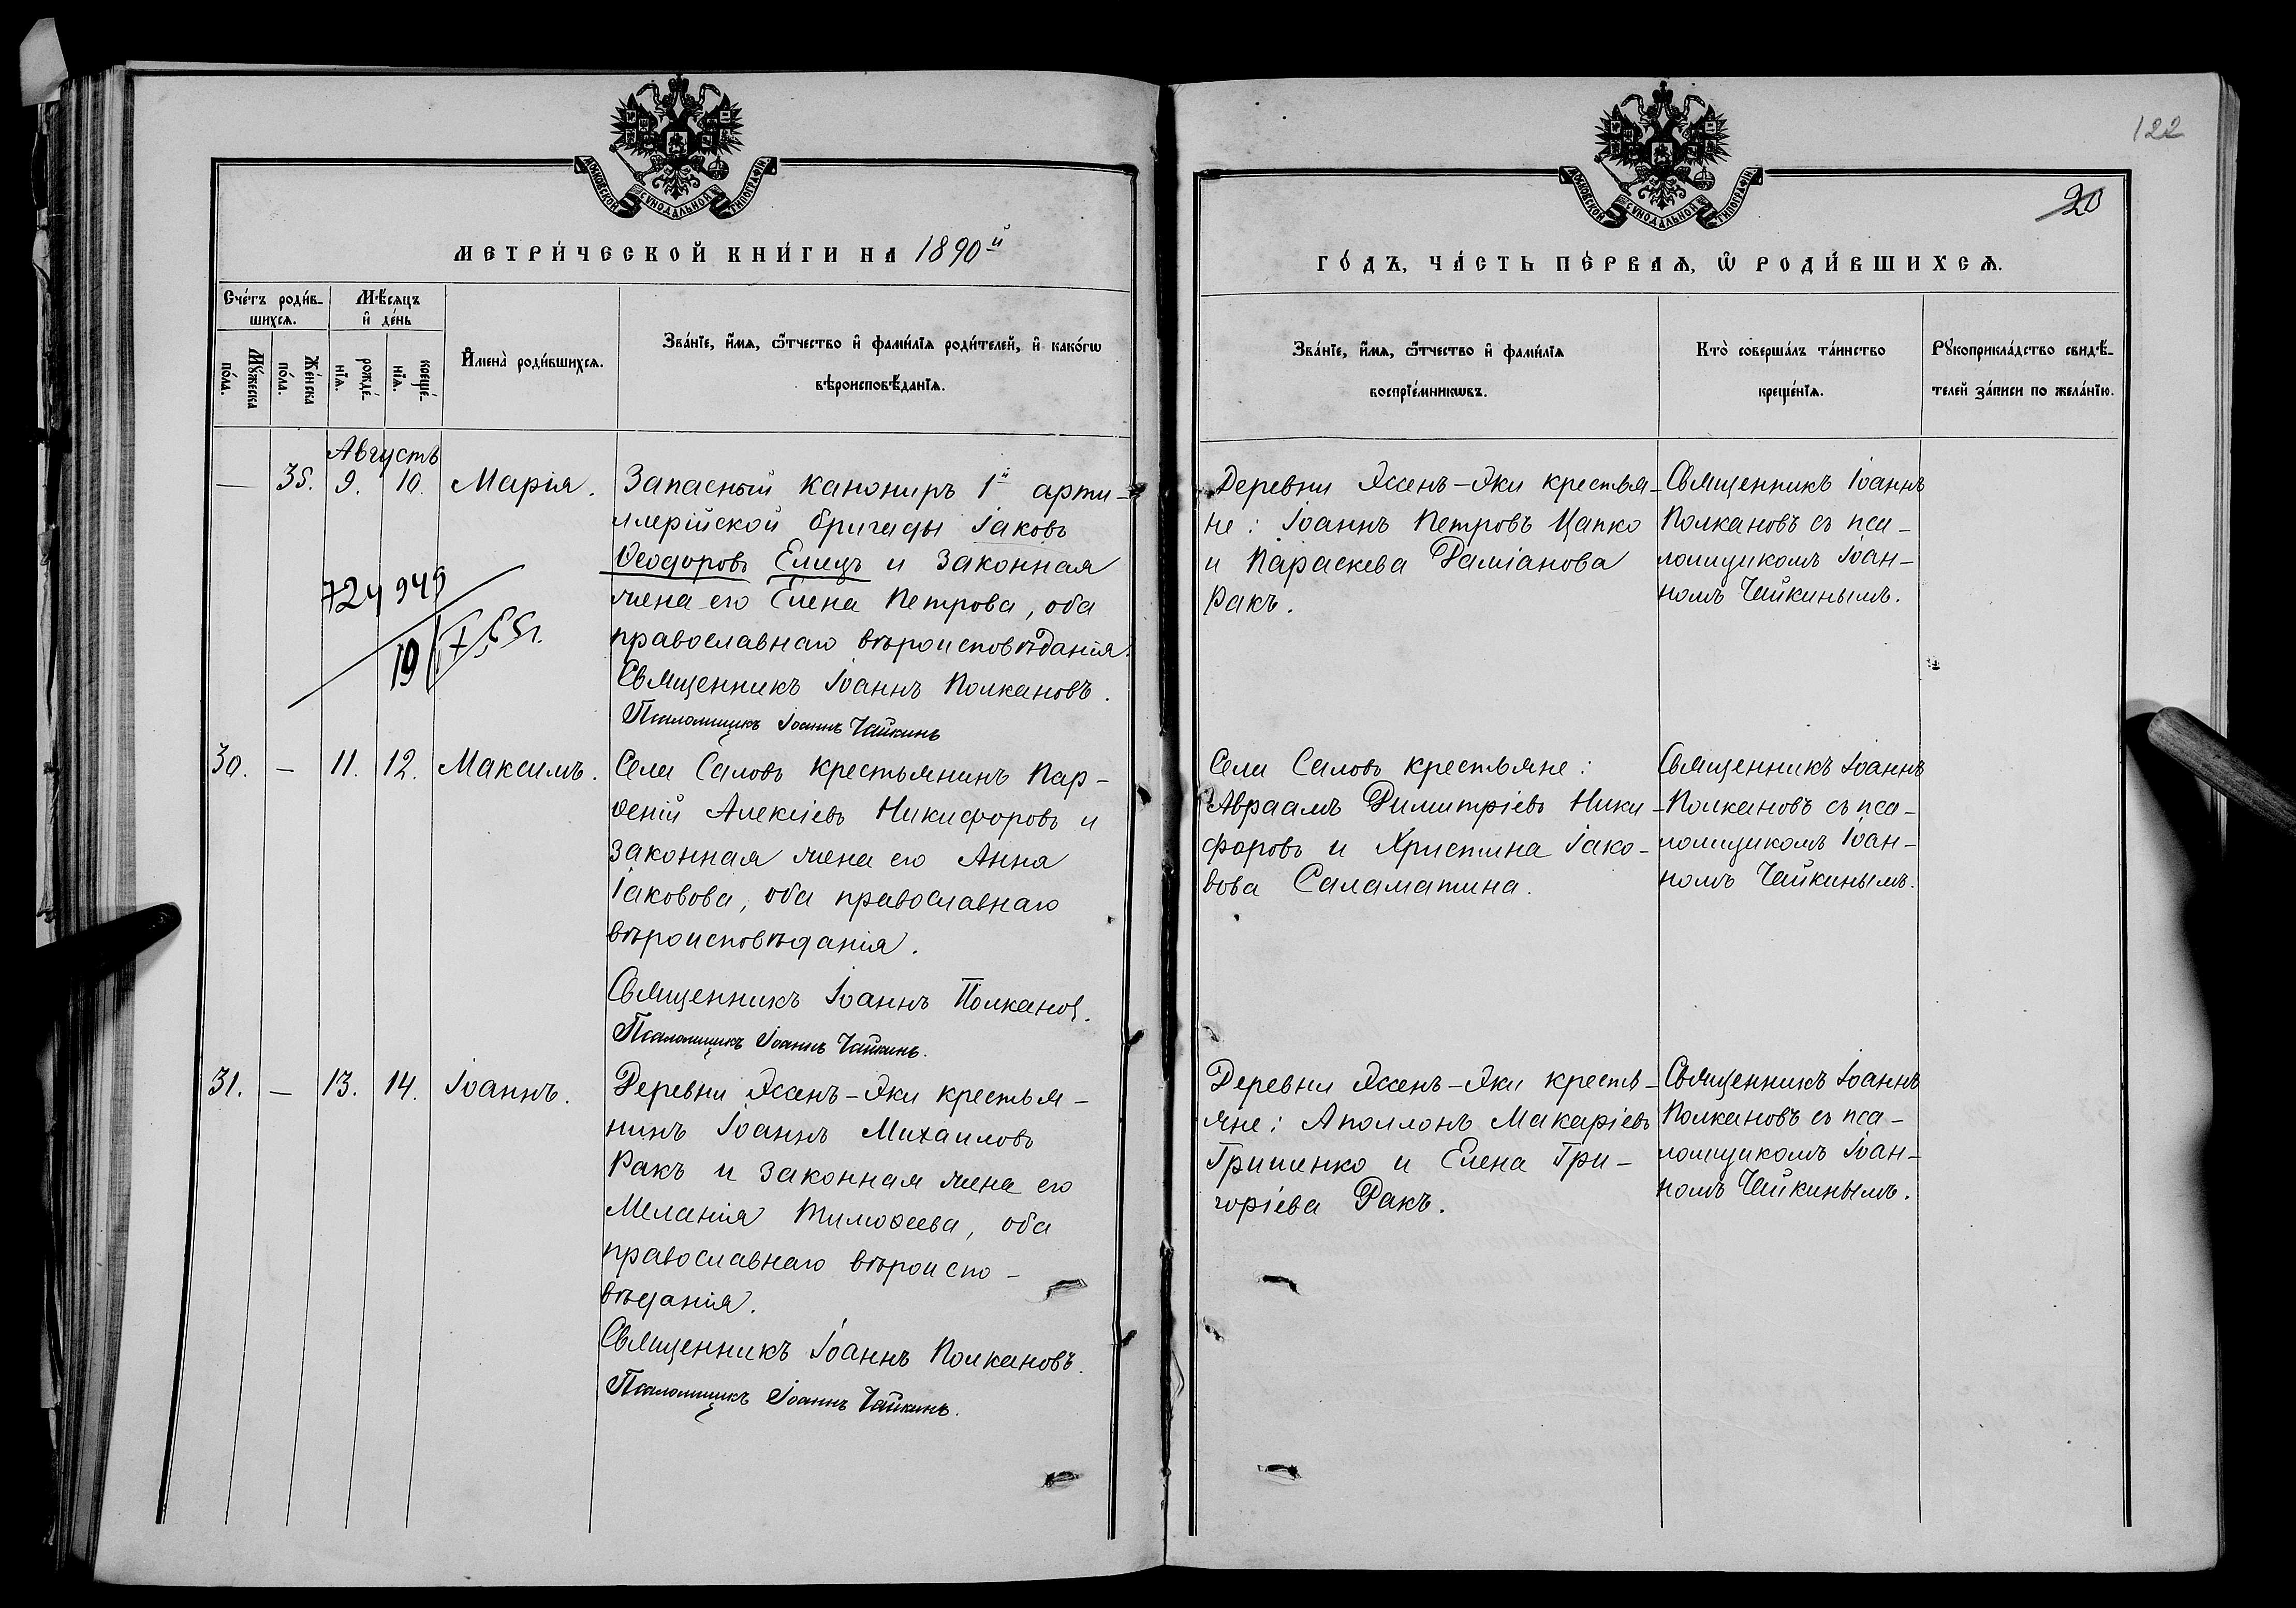 МОСКОВСКОЙ СУНОДАЛЬНОЙ ТИПОГРАФІИ.
МЕТРИ́ЧЕСКОЙ КНИ́ГИ НА 1890й
Сче́тъ роди́в-
шихся.
Мѣ́сяцъ
и҆ де́нь
Мꙋ́жеска
по́ла.
Же́нска
по́ла.
рожде́-
нїѧ.
креще́-
нїѧ.
И҆мена̀ роди́вшихсѧ.
Зва́нїе, и҆́мѧ, ѻ҆́тчество и҆ фами́лїѧ роди́телей, и҆ како́гѡ
вѣроисповѣ́данїѧ.
Августъ
— 35. 9. 10. Марія.
Запасный канониръ 1й арти-
ллерійской бригады Іаковъ
Ѳеодоровъ Емецъ и законная
жена его Елена Петрова, оба
православнаго вѣроисповѣданія.
Священникъ Іоаннъ Полкановъ.
Псаломщикъ Іоаннъ Чайкинъ
949
19
30. — 11. 12. Максимъ.
Села Саловъ крестьянинъ Пар-
ѳеній Алексіевъ Никифоровъ и
законная жена его Анна
Іаковова, оба православнаго
вѣроисповѣданія.
Священникъ Іоаннъ Полканов.
Псаломщикъ Іоаннъ Чайкинъ.
31. — 13. 14. Іоаннъ.
Деревни Эсенъ-Эки крестья-
нинъ Іоаннъ Михаиловъ
Ракъ и законная жена его
Меланія Тимоѳеева, оба
православнаго вѣроиспо-
вѣданія.
Священникъ Іоаннъ Полкановъ.
Псаломщикъ Іоаннъ Чайкинъ.
122
20
МОСКОВСКОЙ СУНОДАЛЬНОЙ ТИПОГРАФІИ.
ГО́ДЪ, ЧА́СТЬ ПЕ́РВАѦ, Ѡ҆ РОДИ́ВШИХСѦ.
Зва́нїе, и҆́мѧ, ѻ҆́тчество и҆ фами́лїѧ
воспрїе́мникѡвъ.
Кто̀ соверша́лъ та́инство
креще́нїѧ.
Рꙋкоприкла́дство свидѣ́-
телей за́писи по жела́нїю.
Деревни Эсенъ-Эки крестья-
не: Іоаннъ Петровъ Цапко
и Параскева Даміанова
Ракъ.
Священникъ Іоаннъ
Полкановъ съ пса-
ломщикомъ Іоан-
номъ Чайкинымъ.
Села Саловъ крестьяне:
Авраамъ Димитріевъ Ники-
форовъ и Христина Іако-
вова Саламатина.
Священникъ Іоаннъ
Полкановъ съ пса-
ломщикомъ Іоан-
номъ Чайкинымъ.
Деревни Эсенъ-Эки кресть-
яне: Аполлонъ Макаріевъ
Гриценко и Елена Гри-
горіева Ракъ.
Священникъ Іоаннъ
Полкановъ съ пса-
ломщикомъ Іоан-
номъ Чайкинымъ.